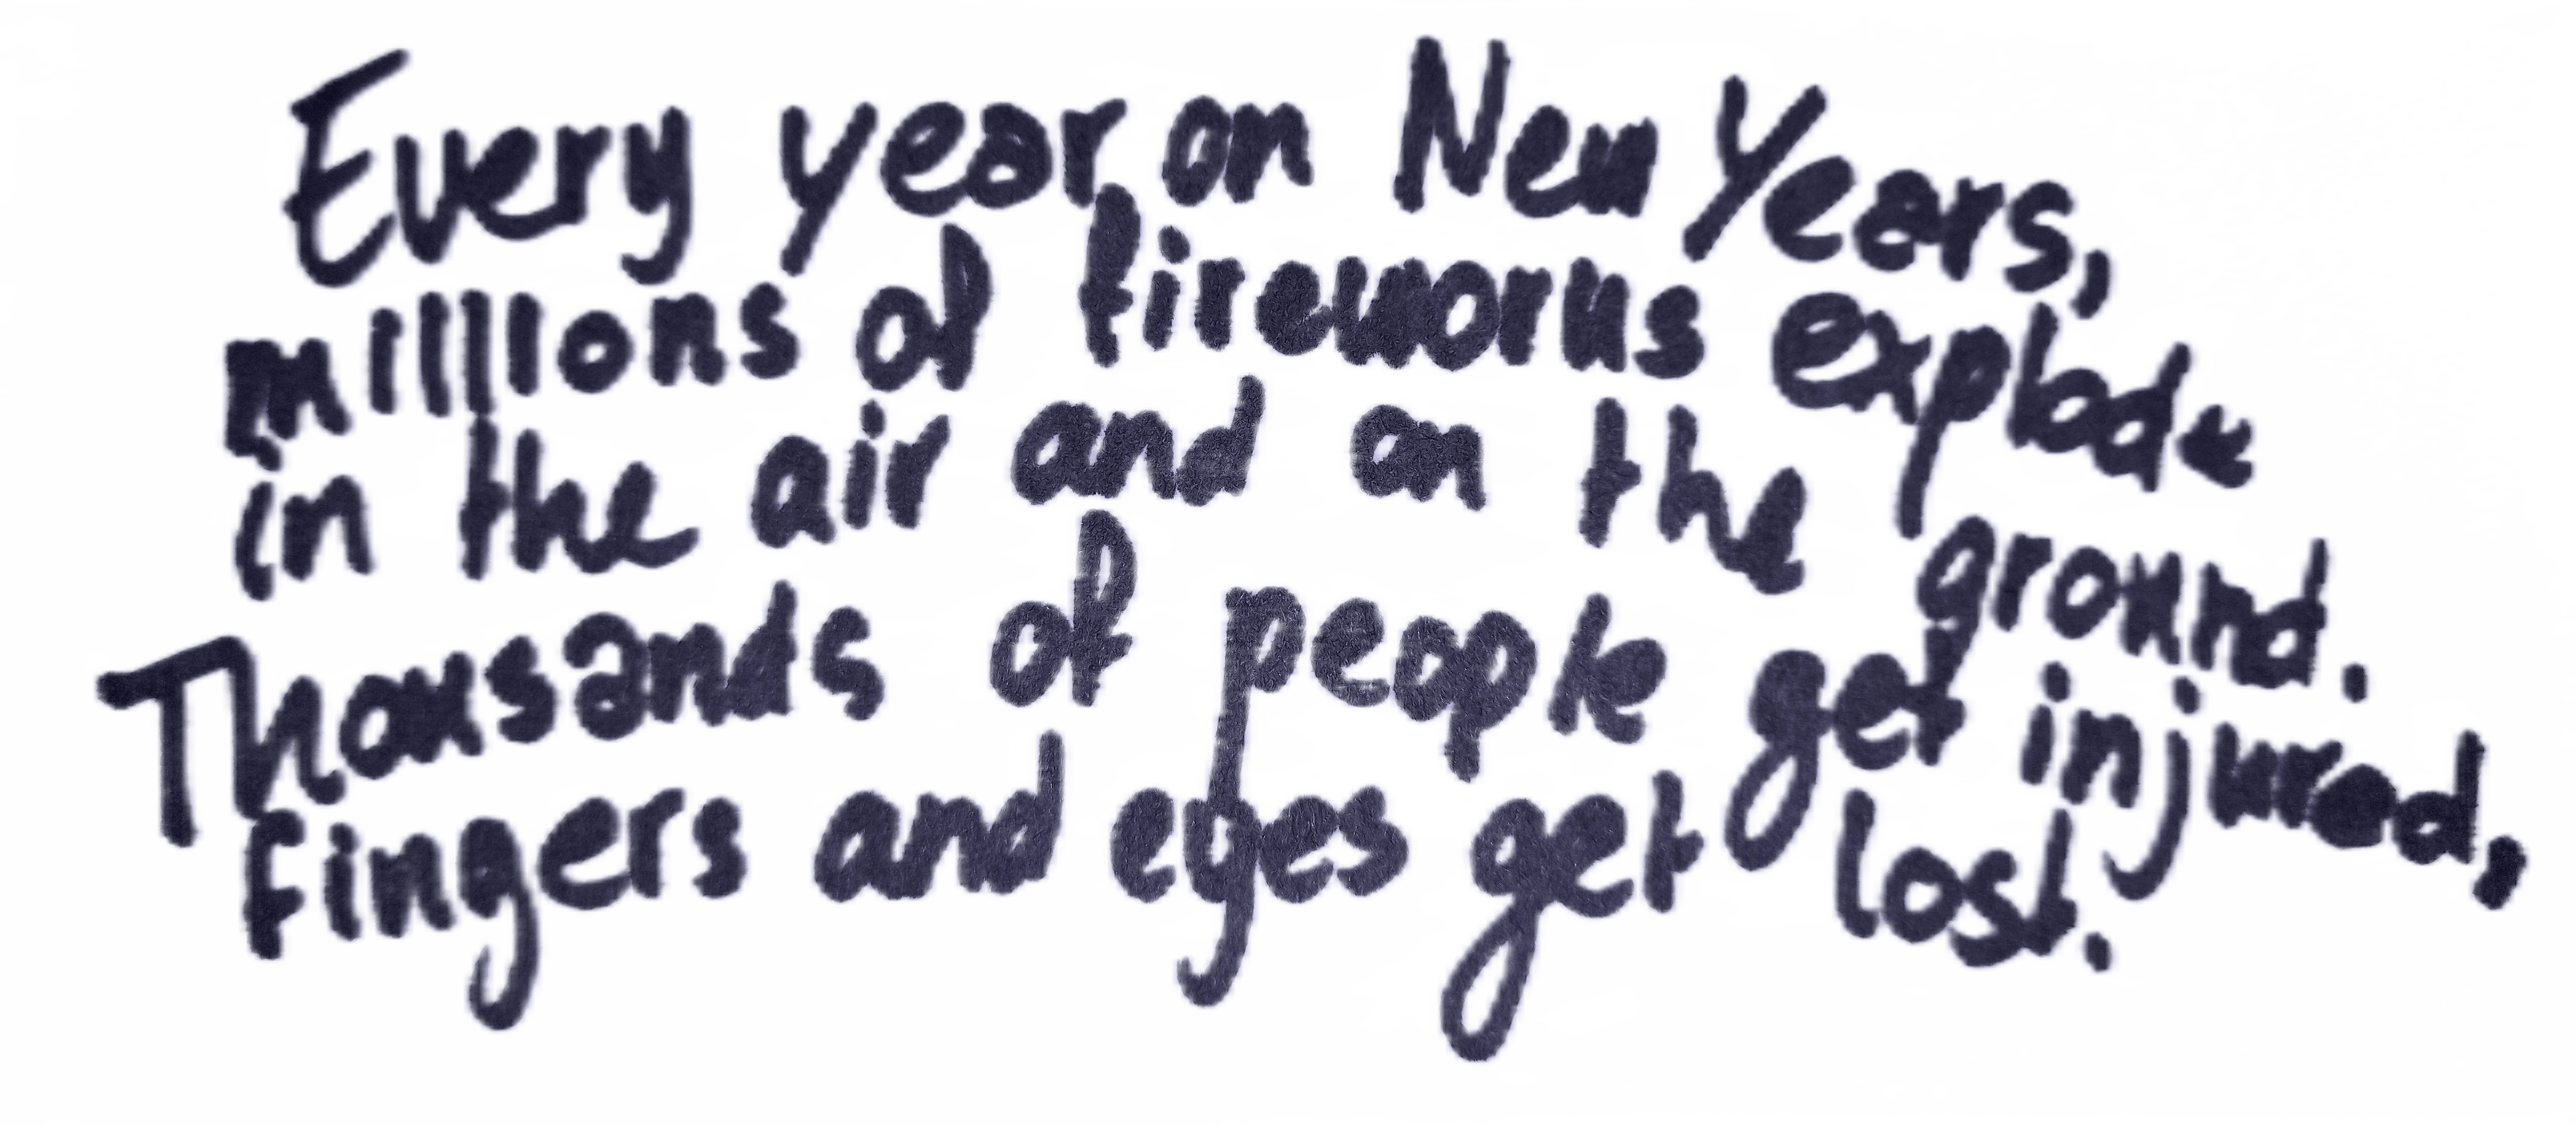 Every year on New Years,
millions of fireworks explode
in the air and on the ground.
Thousands of people get injured,
fingers and eyes get lost.